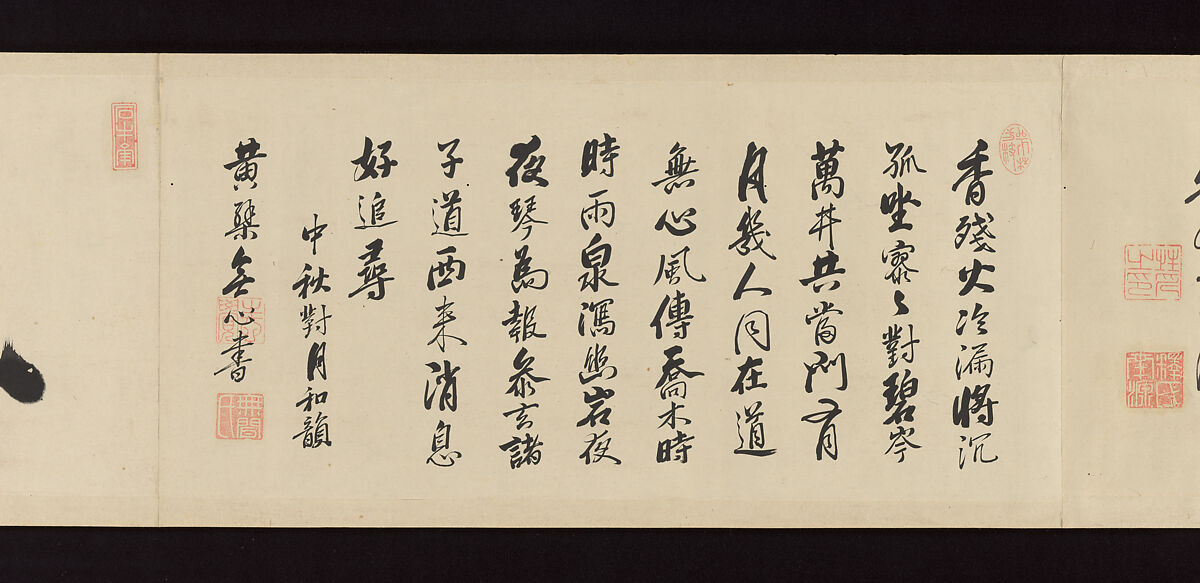 香殘火冷漏將沉
孤坐寥々對碧岑
萬井共當門有
月幾人同在道
無心風傳喬木時
時雨泉瀉幽岩夜
夜琴為報参玄諸
子道西来消息
好追尋
中秋對月和韻
黄檗無心書